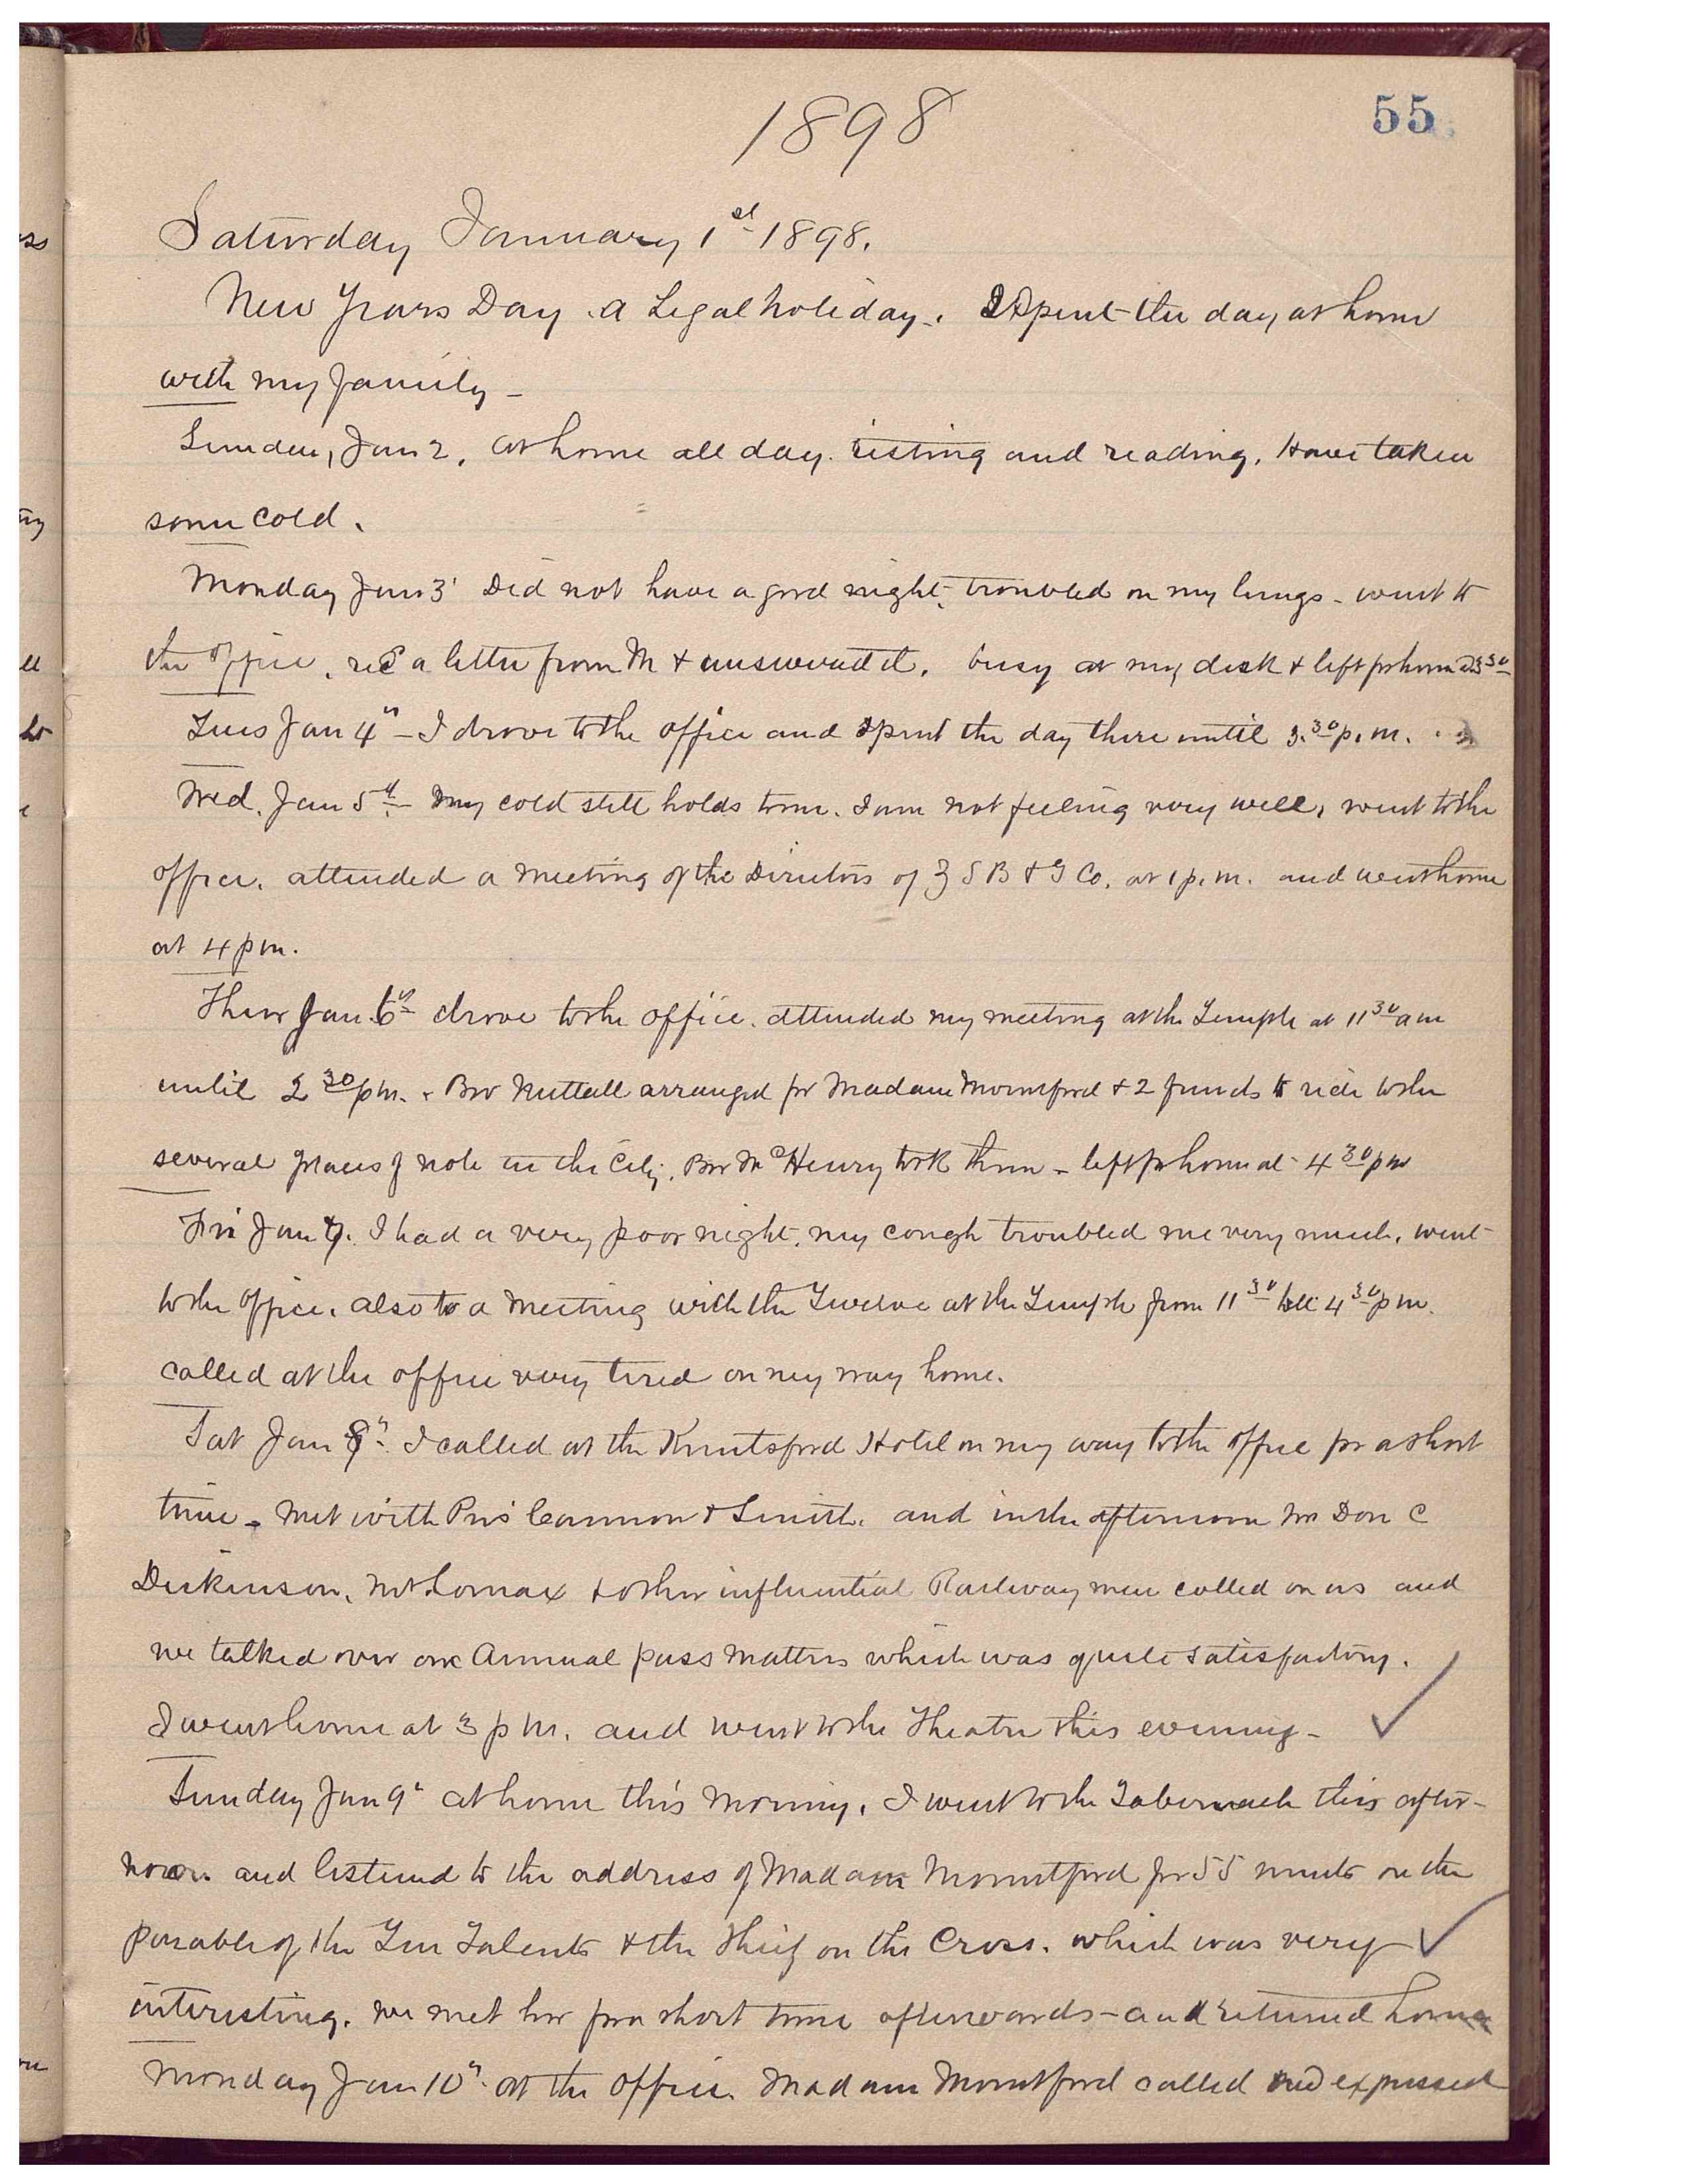 55
1898
Saturday January 1st 1898.
New Years Day. a Legal holiday. I Spent the day at home
with my family -
Sunday, Jan 2, at home all day. resting and reading. Have taken
some cold.
Monday Jan 3' Did not have a good night, troubled on my lungs - went to
the office, recd a letter from M + answered it, busy at my desk + left for home at 3 30
Tues Jan 4th - I drove to the office and spent the day there until 3.30 p.m.
Wed. Jan 5th - My cold still holds to me. I am not feeling very well, went to the
office. attended a meeting of the Directors of Z S B + T Co. at 1 p.m. and went home
at 4 pm.
Thur Jan. 6th drove to the office. attended my meeting at the Temple at 11 30 am
until 2 30 pm. Bro Nuttall arranged for Madam Mountford + 2 friends to ride to the
several places of note in the City. Bro McHenry took them - left for home at 4 30 pm
Fri Jan 7. I had a very poor night, my cough troubled me very much, went
to the office. also to a meeting with the Twelve at the Temple from 11 30 till 4 30 pm.
called at the office very tired on my way home.
Sat Jan 8th. I called at the Knutsford Hotel on my way to the office for a short
time - met with Pres Cannon + Smith. and in the afternoon Mr Don C
Dickinson, Mr Lomax + other influential Railway men called on us and
we talked over our Annual pass matters which was quite satisfactory.
I went home at 3 p m. and went to the Theatre this evening -
Sunday Jan 9th at home this morning. I went to the Tabernacle this after-
noon and listened to the address of Madam Mountford for 55 minuts on the
parable of the Ten Talents + the Thief on the Cross. which was very
interesting. we met her for a short time afterwards - and returned home
Monday Jan 10th. at the office. Madam Mountford called and expressed